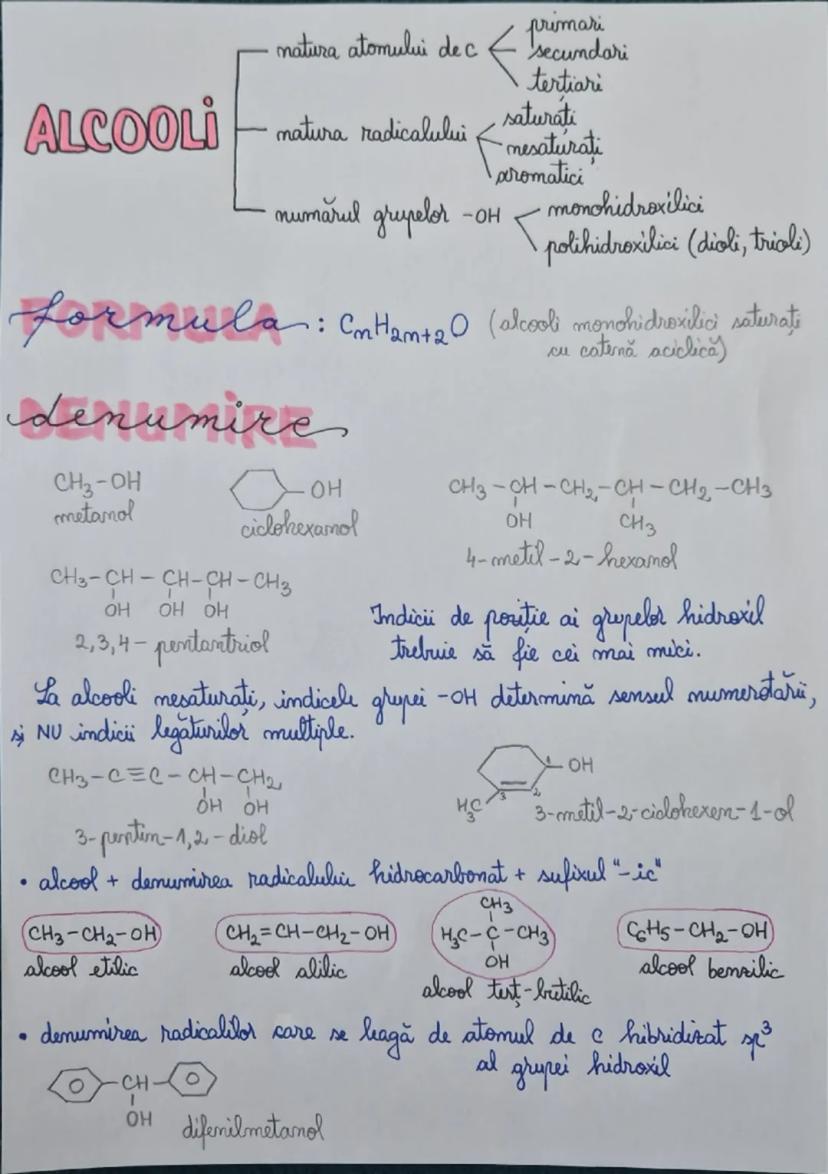 ALCOOLI
natura atomului de C
primari
secundari
terțiari
natura radicalului
saturați
nesaturați
aromatici
numărul grupelor -OH
monohidroxilici
polihidroxilici (dioli, trioli)
formula : CnH2n+2O (alcooli monohidroxilici saturați
FORMULA
cu catenă aciclică)
denumire
DENUMIRE
CH3-OH
metanol
OH
ciclohexanol
CH3-CH-CH2-CH-CH2-CH3
OH CH3
4-metil-2-hexanol
CH3-CH-CH-CH-CH3
OH OH OH
2,3,4-pentantriol
Indicii de poziție ai grupelor hidroxil
trebuie să fie cei mai mici.
La alcooli nesaturați, indicele grupei -OH determină sensul numerotării,
și NU indicii legăturilor multiple.
CH3-C≡C-CH-CH2
OH OH
3-pentin-1,2-diol
1 OH
H3C 3 2
3-metil-2-ciclohexen-1-ol
• alcool + denumirea radicalului hidrocarbonat + sufixul "-ic"
CH3-CH2-OH
alcool etilic
CH2=CH-CH2-OH
alcool alilic
CH3
H3C-C-CH3
OH
alcool terț-butilic
C6H5-CH2-OH
alcool benzilic
• denumirea radicalilor care se leagă de atomul de C hibridizat sp3
al grupei hidroxil
CH
OH
difenilmetanol